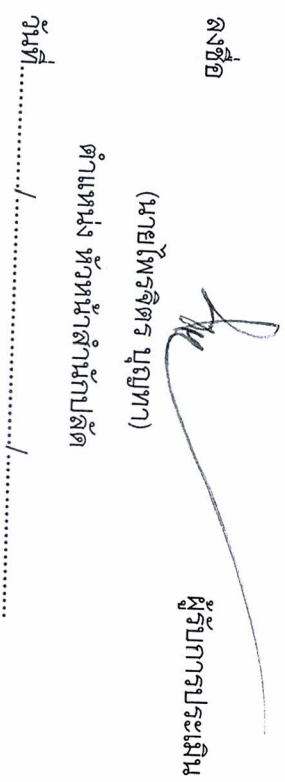 ลงชื่อ ผู้รับการประเมิน
(นายไพรจิตร บุญทา)
ตำแหน่ง หัวหน้าสำนักปลัด
วันที่............/............/............